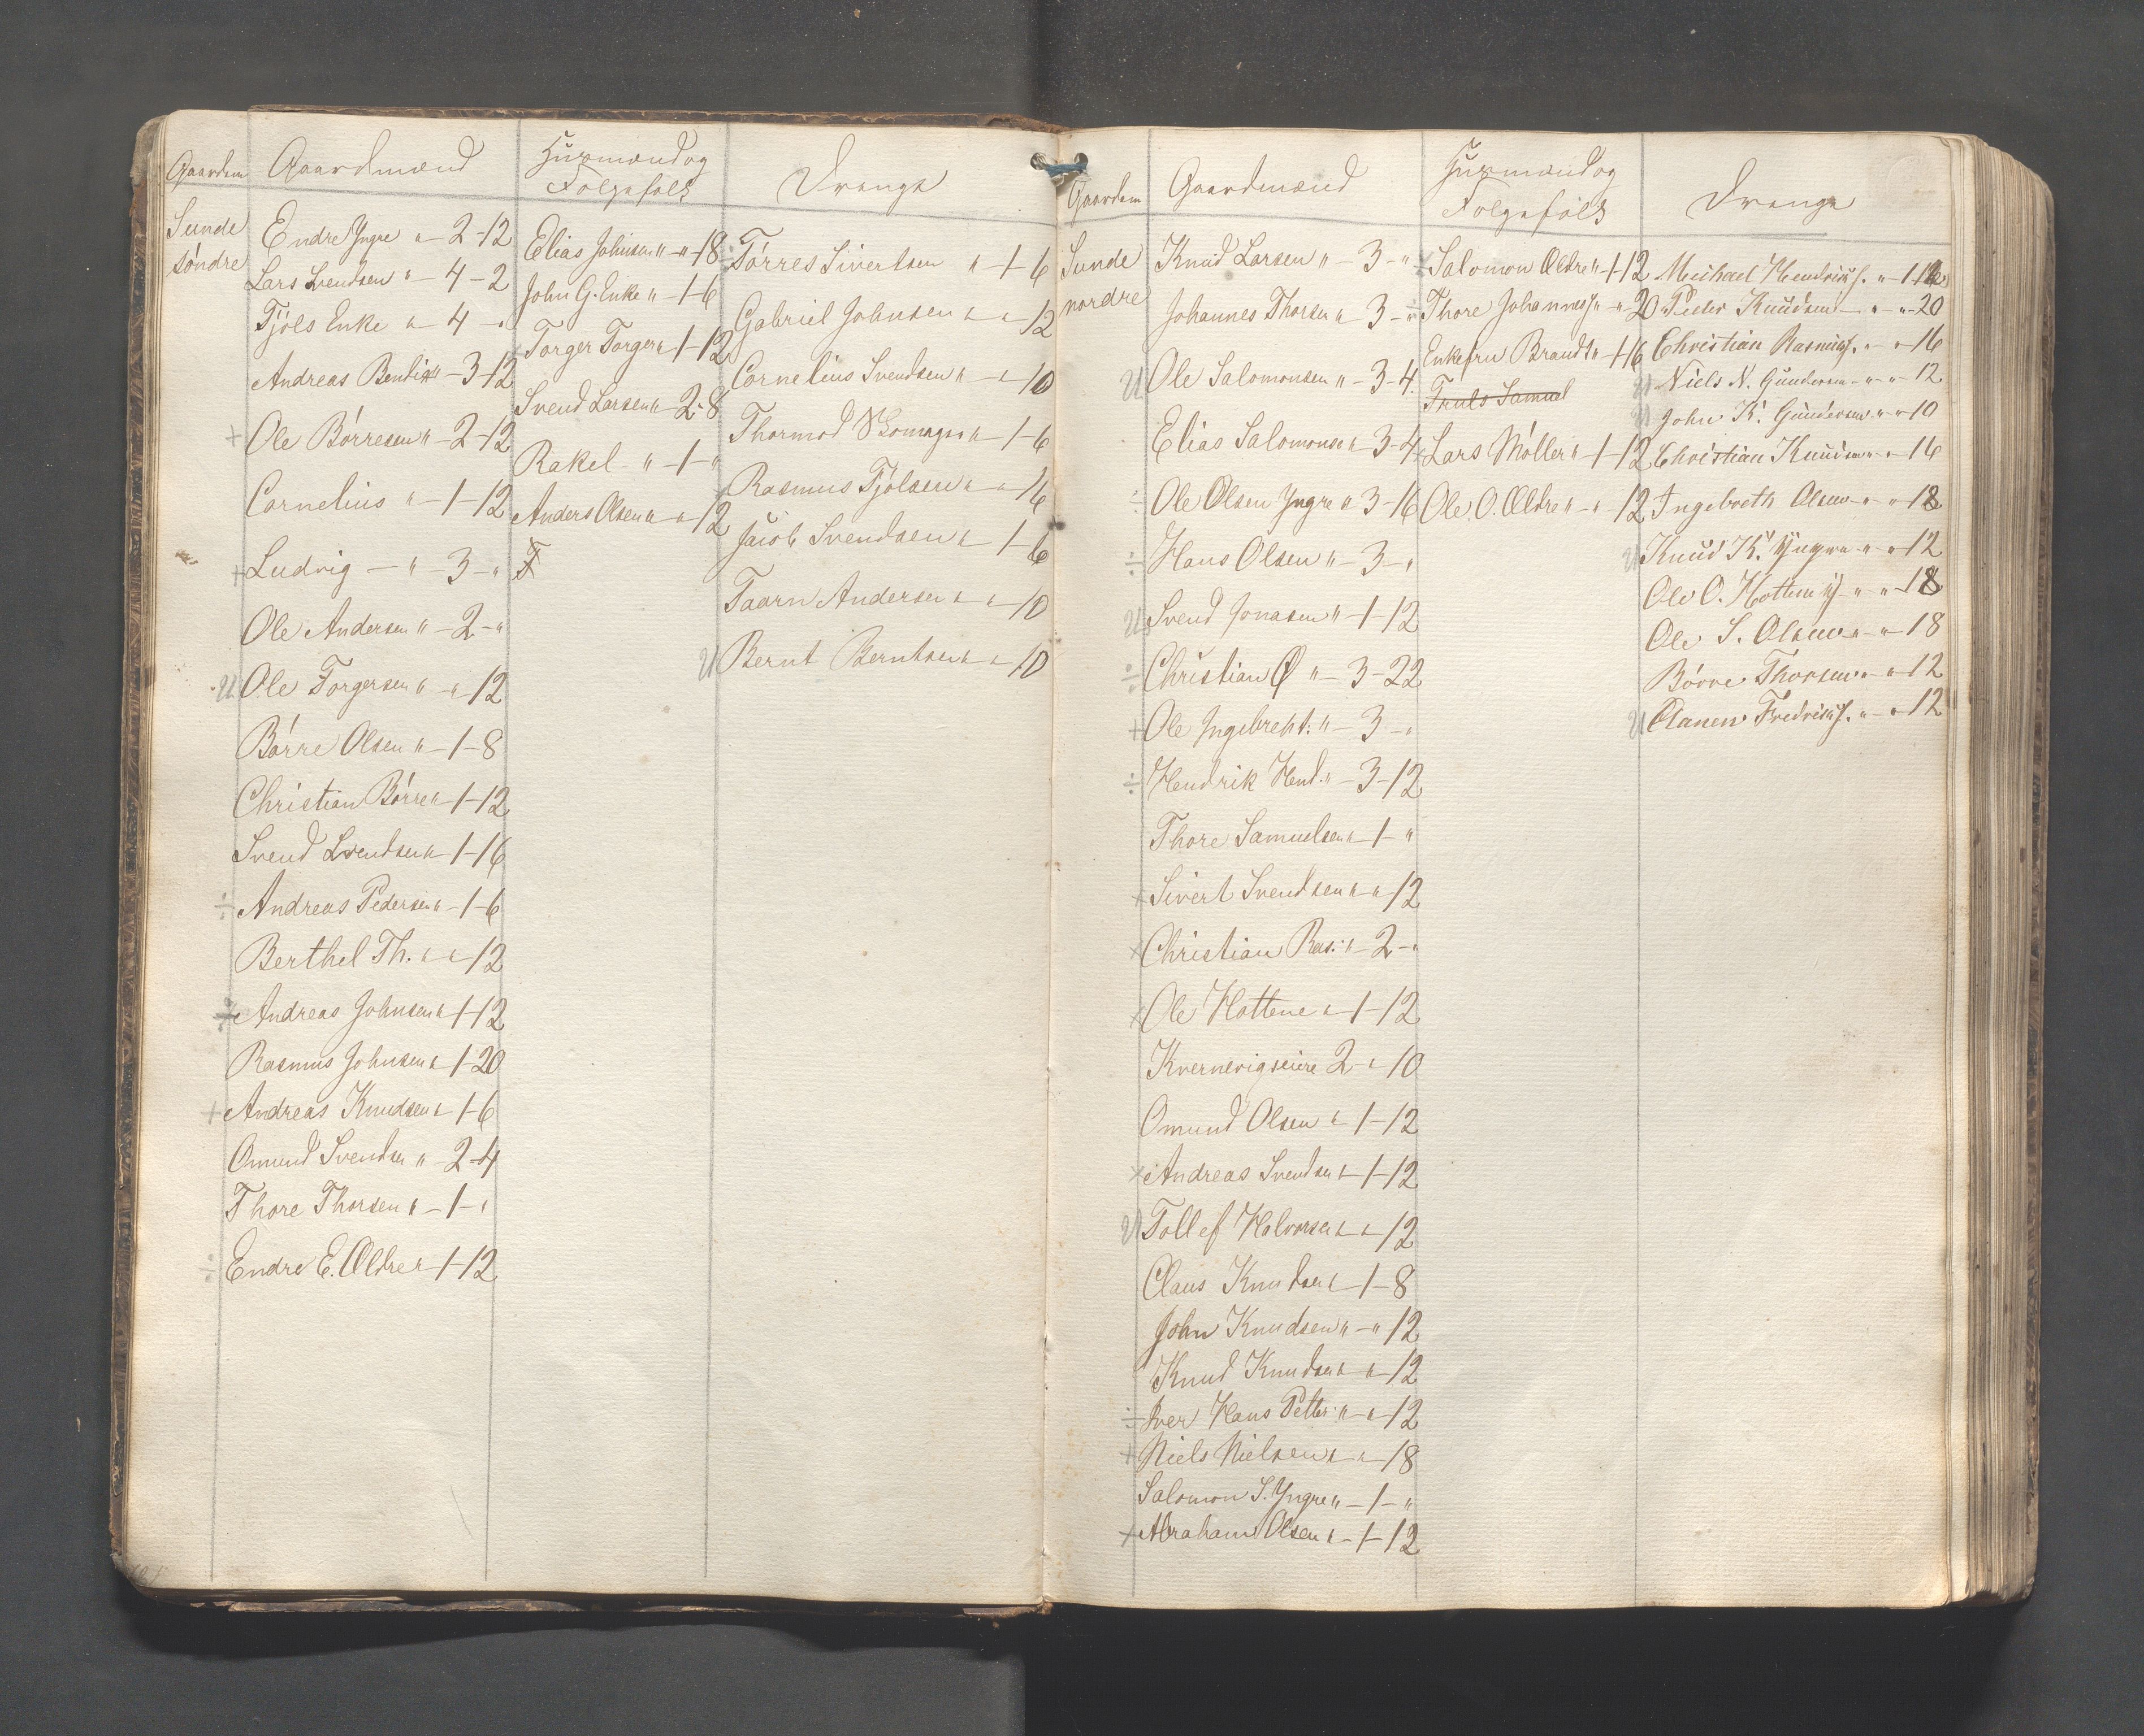 Gaardmænd
Huusmænd og
Folgefolk
Drenge
Sunde
söndre
Endre Yngre " – 2 – 12
Lars Svendsen " – 4 – 2
Tjöls Enke " – 4 – "
Andreas Bentis " – 3 – 12
+ Ole Börresen " – 2 – 12
Cornelius " – 1 – 12
+ Ludvig – " – 3 – "
Ole Andersen " – 2 – "
U Ole Torgersen " – " – 12
Börre Olsen " – 1 – 8
Christian Börre " – 1 – 12
Svend Svendsen " – 1 – 16
÷ Andreas Pedersen " – 1 – 6
Berthel Th. " – " – 12
÷ Andreas Johnsen " – 1 – 12
Rasmus Johnsen " – 1 – 20
+ Andreas Knudsen " – 1 – 6
Omund Svendsen " – 2 – 4
Thore Thorsen " – 1 – "
÷ Endre E. Ældre " – 1 – 12
Elias Johnsen " – " – 18
John G. Enke " – 1 – 6
Torger Torger " – 1 – 12
Svend Larsen " – 2 – 8
Rakel – " – 1 – "
Anders Olsen " – " – 12
Törres Sivertsen " – 1 – 6
Gabriel Johnsen " – " – 12
Cornelius Svendsen " – " – 10
Thormod " – 1 – 6
Rasmus Tjölsen " – " – 16
Jacob Svendsen " – 1 – 6
Taarn Andersen " – " – 10
U Bernt Berntsen " – " – 10
Gaardmænd
Huusmænd og
Folgefolk
Drenge
Sunde
nordre
Knud Larsen " – 3 – "
Johannes Thorsen " – 3 – "
U Ole Salomonsen " – 3 – 4
Elias Salomonsen " – 3 – 4
÷ Ole Olsen Yngre " – 3 – 16
÷ Hans Olsen " – 3 – "
U Svend Jonasen " – 1 – 12
÷ Christian Ø " – 3 – 22
+ Ole Ingebreht: " – 3 – "
÷ Hendrik Hend. " – 3 – 12
Thore Samuelsen " – 1 – "
+ Sivert Svendsen " – " – 12
+ Christian Ras: " – 2 – "
+ Ole Hottene " – 1 – 12
Kvernevigseiere 2 – " – 10
Omund Olsen " – 1 – 12
+ Andreas Svendsen " – 1 – 12
U Tollef Halvorsen " – " – 12
Claus Knudsen " – 1 – 8
John Knudsen " – " – 12
Knud Knudsen " – " – 12
÷ Iver Hans Petter: " – " – 12
+ Niels Nielsen " – " – 18
Salomon S. Yngre " – 1 – "
+ Abraham Olsen " – 1 – 12
÷ Salomon Ældre " – 1 – 12
÷ Thore Johannes " – " – 20
Enkefru Brandt " – 1 – 16
Truls Samuel
Lars Möller " – 1 – 12
Ole O. Ældre " – " – 12
Michael Hendriks. " – 1 – 12
Peder Knudsen – " – " – 20
Christian Rasmus. " – " – 16
U Niels N. Gundersen – " – " – 12
U John K. Gundersen " – " – 10
Christian Knudsen " – " – 16
Ingebreth Olsen – " – " – 18
U Knud K. Yngre " – " – 12
Ole O. Hottene " – " – 18
Ole S. Olsen " – " – 18
Börre Thorsen " – " – 12
U Aanen Fredriks. " – " – 12